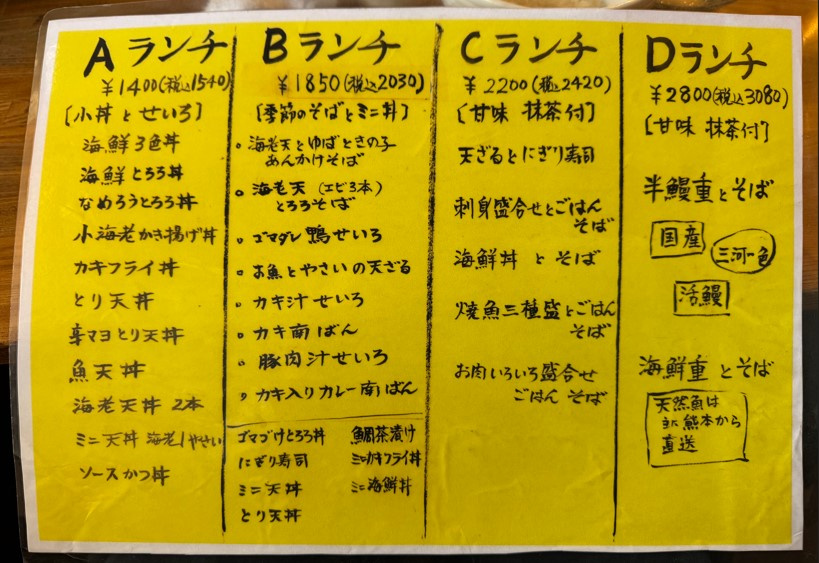 Aランチ
¥1400(税込1540)
[小丼とせいろ]
海鮮3色丼
海鮮とろろ丼
なめろうとろろ丼
小海老かき揚げ丼
カキフライ丼
とり天丼
辛マヨとり天丼
魚天丼
海老天丼 2本
ミニ天丼 海老1やさい
ソースかつ丼
Bランチ
¥1850(税込2030)
[季節のそばとミニ丼]
・海老天とゆばときの子
あんかけそば
・海老天(エビ3本)
とろろそば
・ゴマダレ鴨せいろ
・お魚とやさいの天ざる
・カキ汁せいろ
・カキ南ばん
・豚肉汁せいろ
・カキ入りカレー南ばん
ゴマづけとろろ丼 鯛茶漬け
にぎり寿司 ミニカキフライ丼
ミニ天丼 ミニ海鮮丼
とり天丼
Cランチ
¥2200(税込2420)
[甘味 抹茶付]
天ざるとにぎり寿司
刺身盛合せとごはん
そば
海鮮丼 と そば
焼魚三種盛とごはん
そば
お肉いろいろ盛合せ
ごはん そば
Dランチ
¥2800(税込3080)
[甘味 抹茶付]
半鰻重とそば
国産
三河一色
活鰻
海鮮重 とそば
天然魚は
主に熊本から
直送